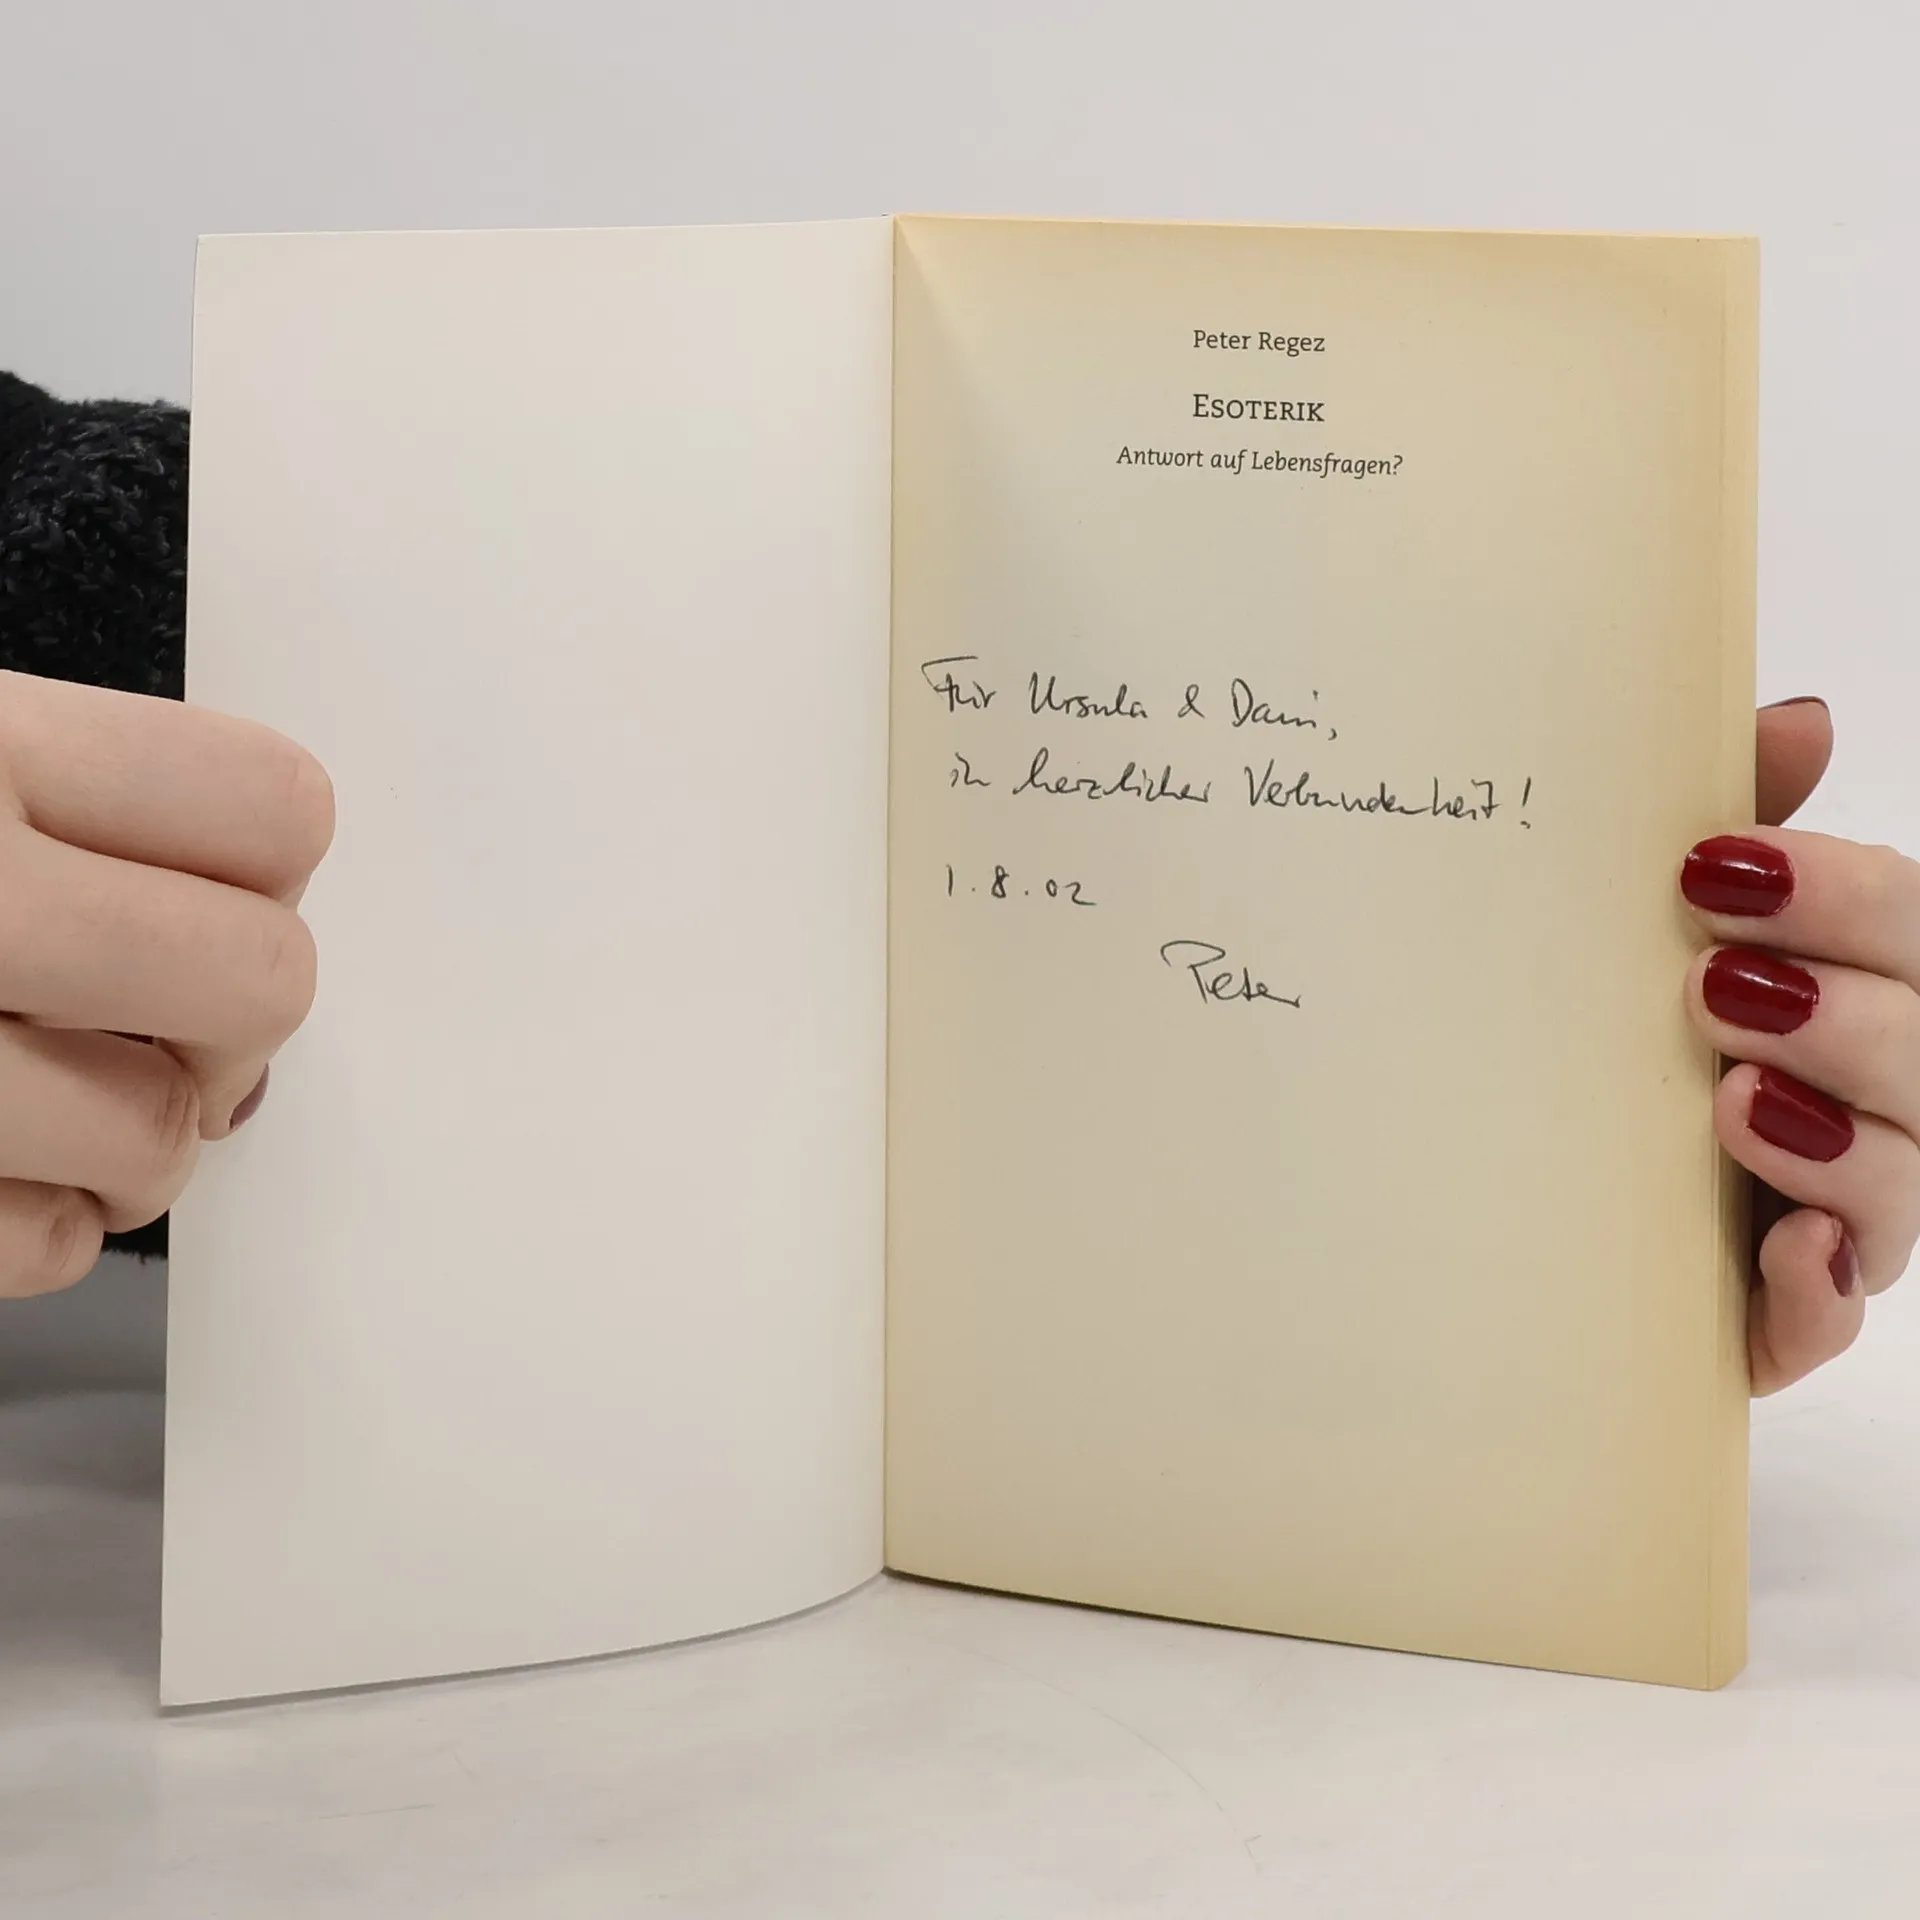 Peter Regez
ESOTERIK
Antwort auf Lebensfragen?
Für Ursula & Dani,
in herzlicher Verbundenheit!
1.8.02
Peter